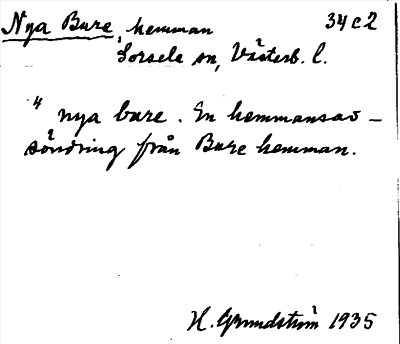 Nya Bure, hemman 34c2
Sorsele sn, Västerb. l.
" nya bure. En hemmansav-
söndring från Bure hemman.
H. Grundström 1935